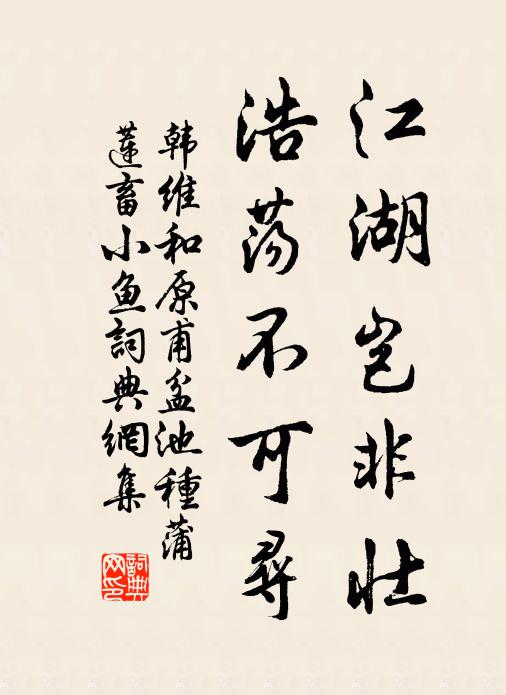 江湖岂非壮
浩荡不可尋
韩维和原甫盆池種蒲
莲畜小魚詞典網集
詞典
网印